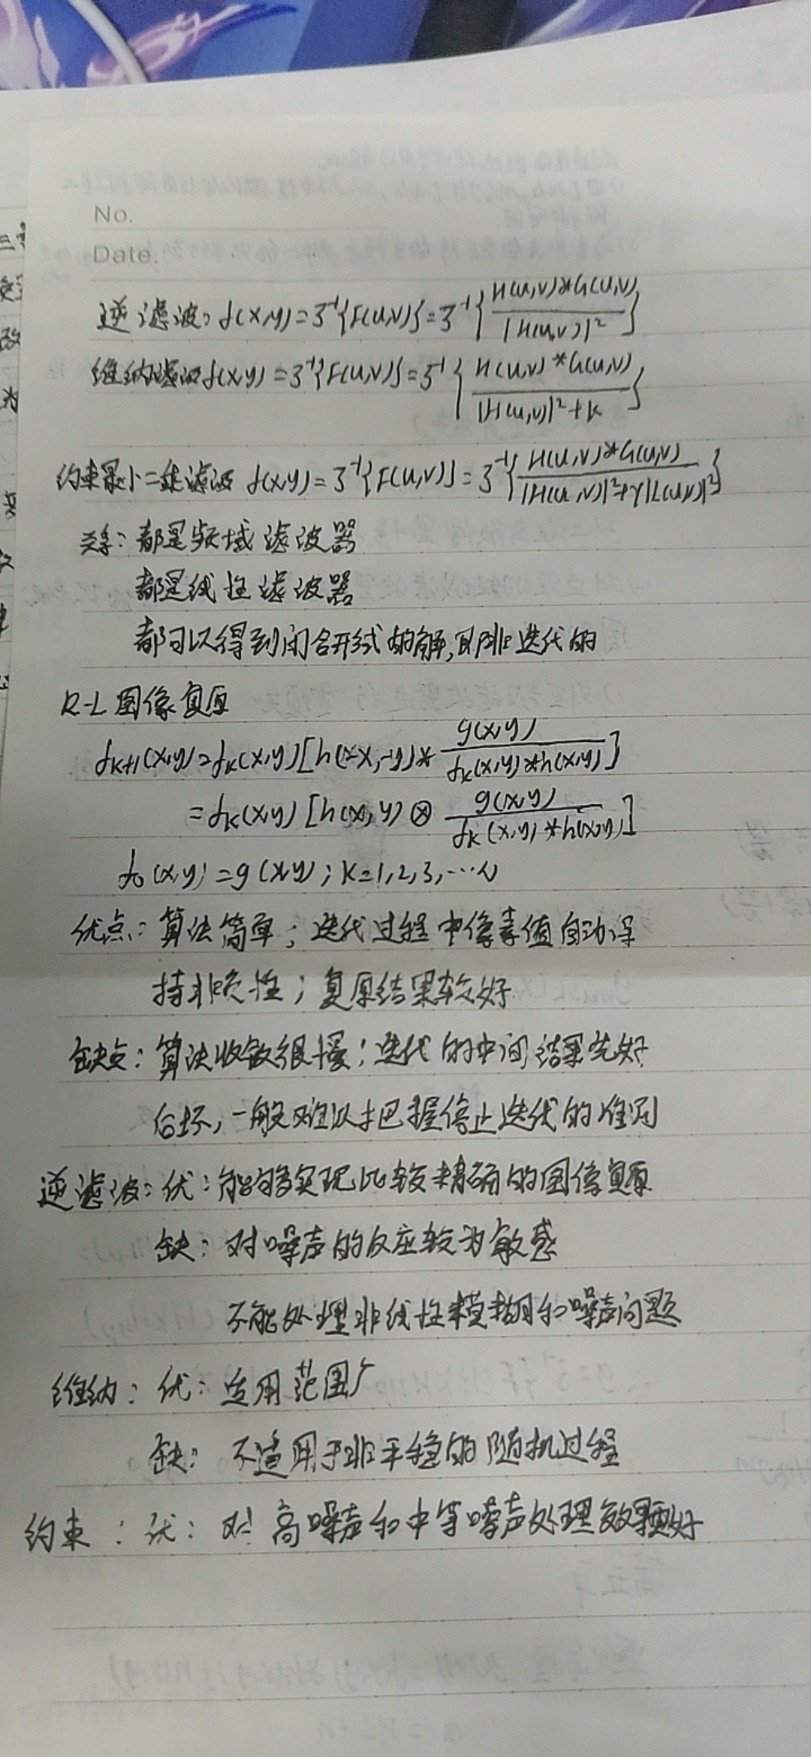 No.
Date.
逆滤波: f(x,y)=ℱ⁻¹{F(u,v)}=ℱ⁻¹{H(u,v)*G(u,v)/|H(u,v)|²}
维纳滤波f(x,y)=ℱ⁻¹{F(u,v)}=ℱ⁻¹{H(u,v)*G(u,v)/(|H(u,v)|²+K)}
约束最小二乘滤波 f(x,y)=ℱ⁻¹{F(u,v)}=ℱ⁻¹{H(u,v)*G(u,v)/(|H(u,v)|²+γ|L(u,v)|²)}
关系: 都是频域滤波器
都是线性滤波器
都可以得到闭合形式的解,即非迭代的
R-L图像复原
f_{k+1}(x,y)=f_k(x,y)[h(-x,-y)*g(x,y)/(f_k(x,y)*h(x,y))]
=f_k(x,y)[h(x,y)⊗g(x,y)/(f_k(x,y)*h(x,y))]
f₀(x,y)=g(x,y);K=1,2,3,…
优点: 算法简单;迭代过程中像素值自动保
持非负性;复原结果较好
缺点: 算法收敛很慢;迭代的中间结果先好
后坏,一般难以把握停止迭代的准则
逆滤波: 优: 能够实现比较精确的图像复原
缺: 对噪声的反应较为敏感
不能处理非线性模糊和噪声问题
维纳: 优: 适用范围广
缺: 不适用于非平稳的随机过程
约束: 优: 对高噪声和中等噪声处理效果好